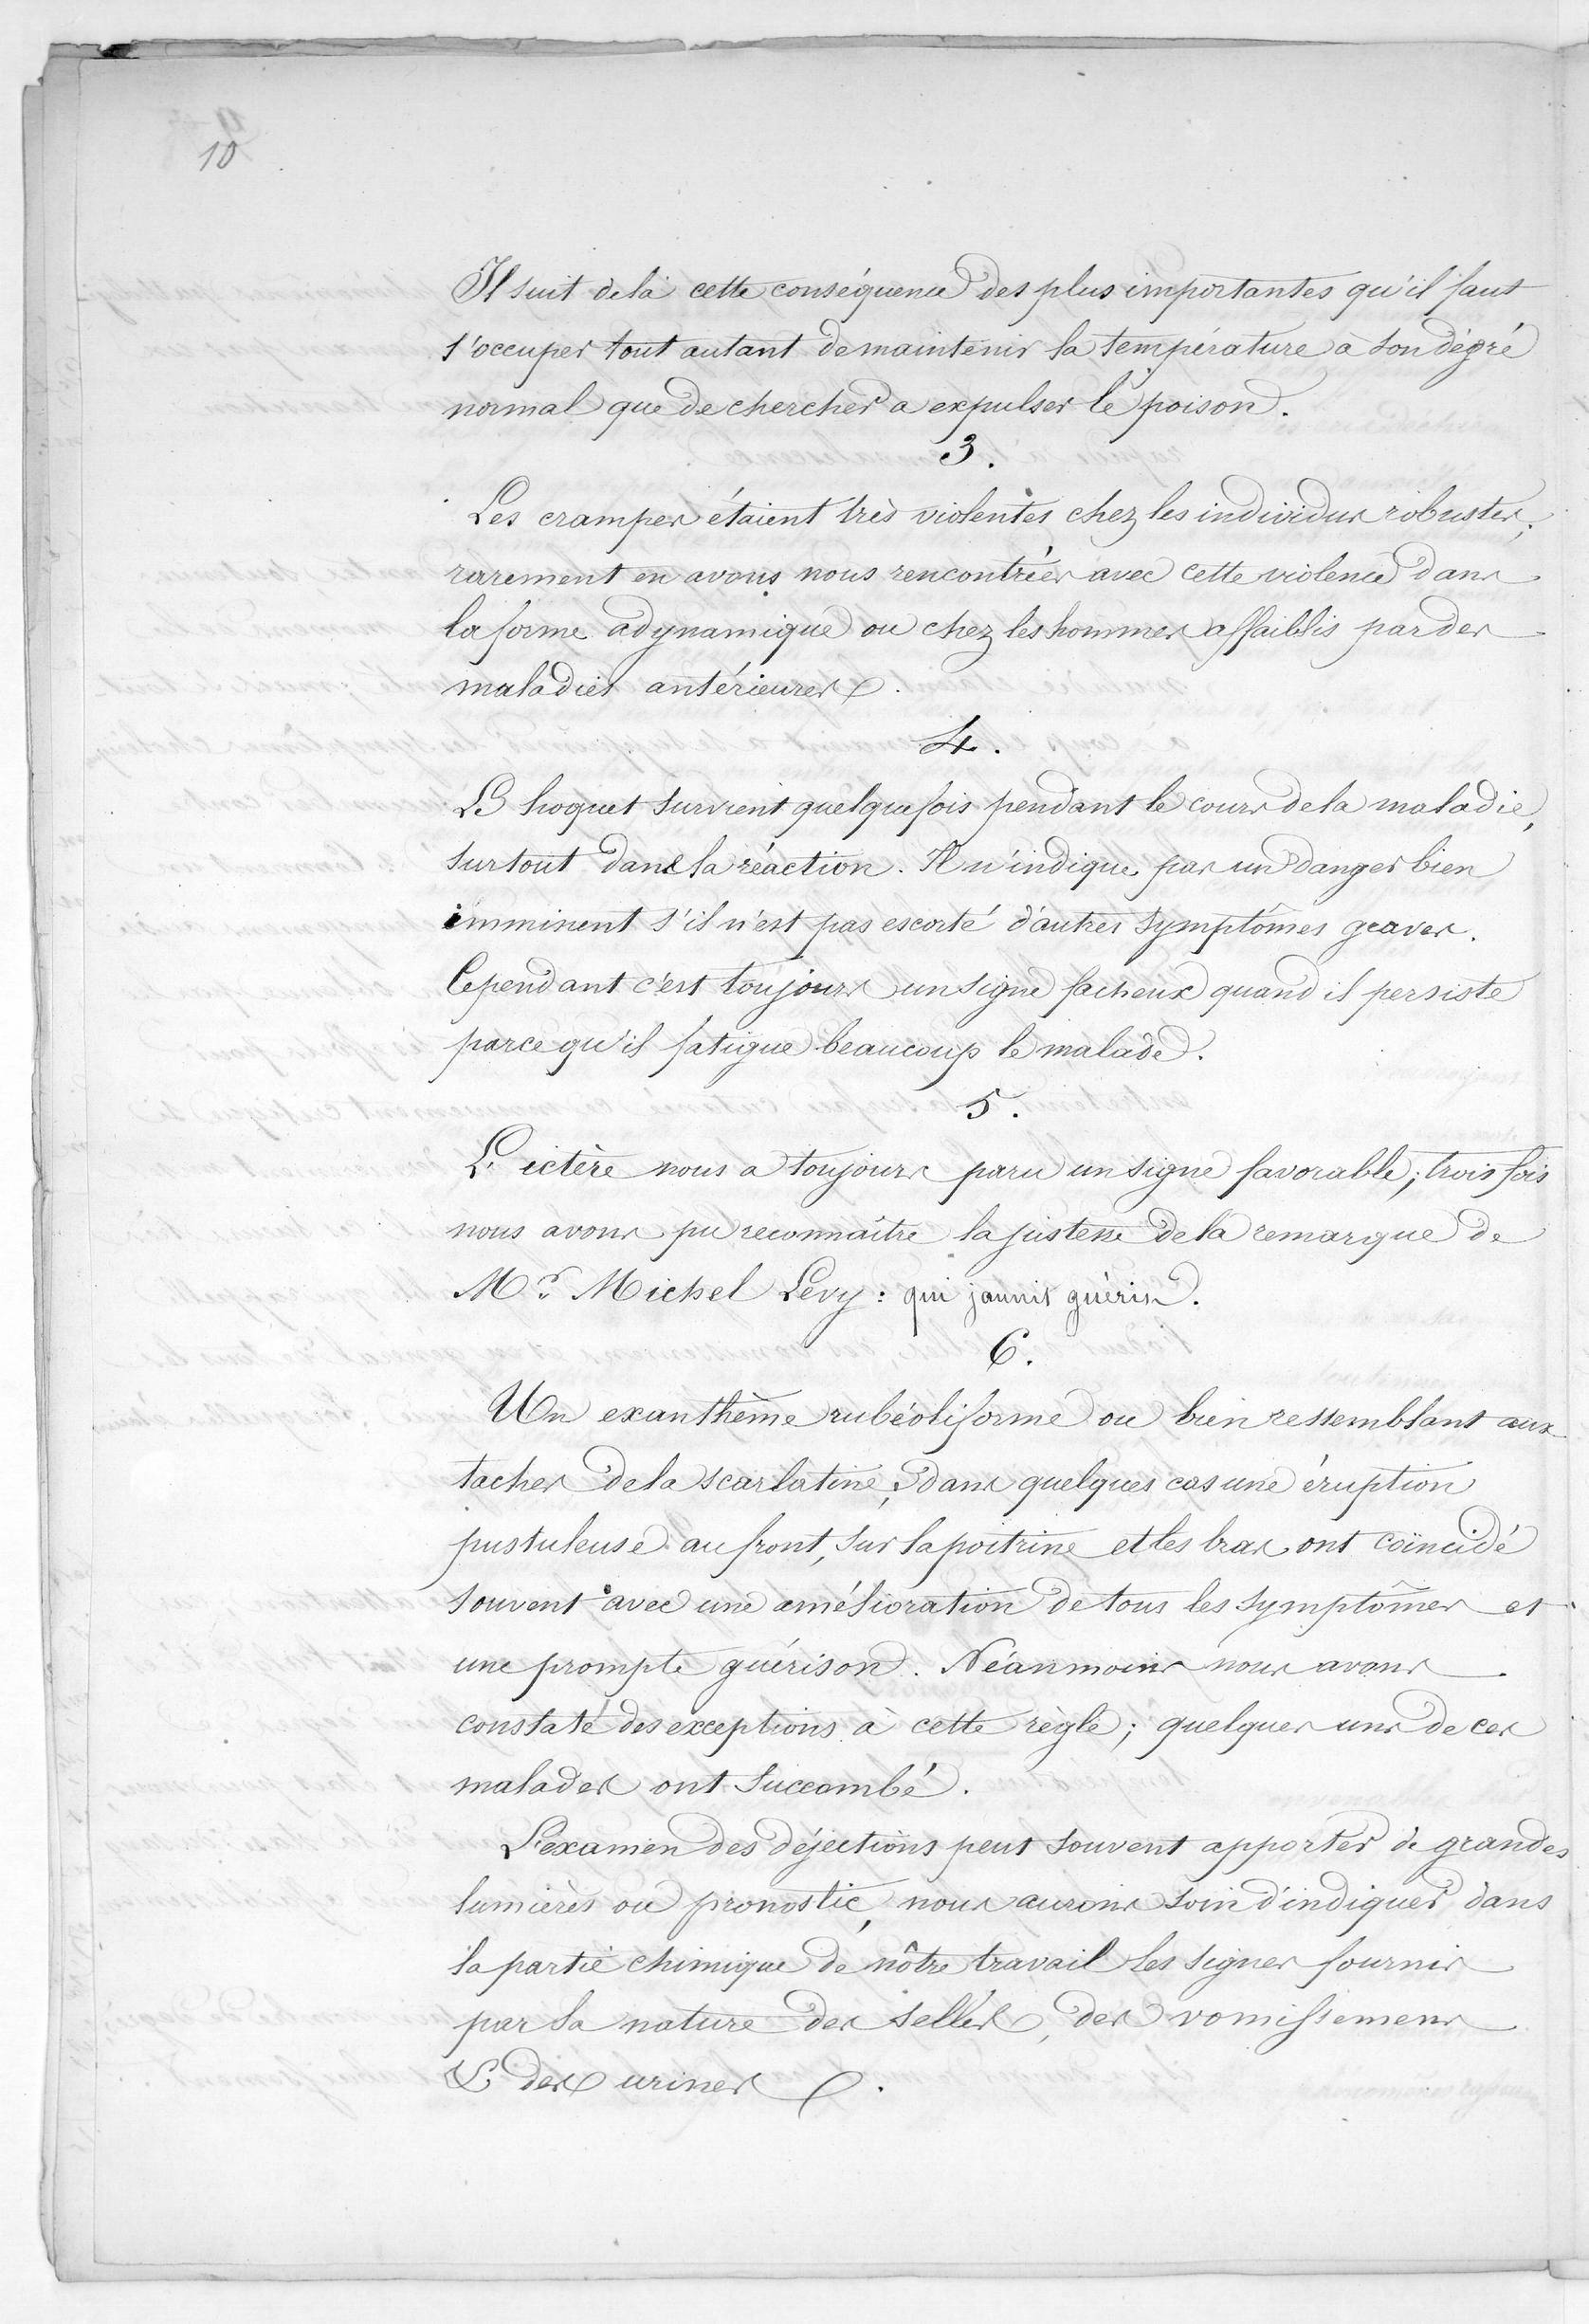 10
Il suit de là cette conséquence des plus importantes qu'il faut
s'occuper tout autant de maintenir la température à son dégré
normal que de chercher a expulser le poison.
3.
Les crampes étaient très violentes chez les individus robustes;
rarement en avons nous rencontrées avec cette violence dans
la forme adynamique ou chez les hommes affaiblis par des
maladies antérieures.
4.
Le hoquet survient quelquefois pendant le cours de la maladie,
surtout dans la réaction. Il n'indique pas un danger bien
imminent s'il n'est pas escorté d'autres symptômes graves.
Cependant c'est toujours un signe facheux quand il persiste
parce qu'il fatigue beaucoup le malade.
5.
L'ictère nous a toujours paru un signe favorable; trois fois
nous avons pu reconnaître la justesse de la remarque de
Mr. Michel Levy: qui jaunit guérit.
6.
Un exanthème rubéoliforme ou bien ressemblant aux
taches de la scarlatine; dans quelques cas une éruption
pustuleuse au front, sur la poitrine et les bras ont coïncidé
souvent avec une amélioration de tous les symptômes et
une prompte guérison. Néanmoins nous avons
constaté des exceptions à cette règle; quelques uns de ces
malades ont succombé.
L'examen des déjections peut souvent apporter de grandes
lumières au pronostic, nous aurons soin d'indiquer dans
la partie chimique de nôtre travail les signes fournis
par la nature des selles, des vomissemens
& des urines.